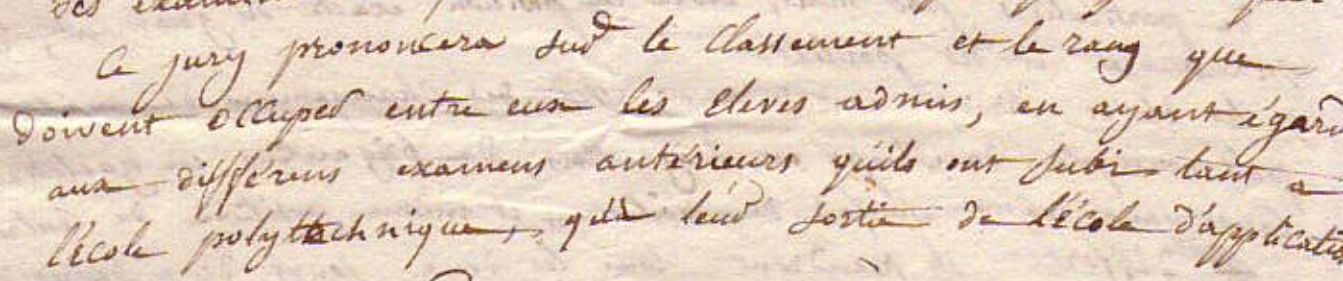 des
Ce jury prononcera sur le classement et le rang que
doivent occuper entre eux les eleves admis, en ayant égard
aux différens examens antérieurs qu'ils ont subi tant a
l'école polytechnique, qu'à leur sortie de l'école d'application